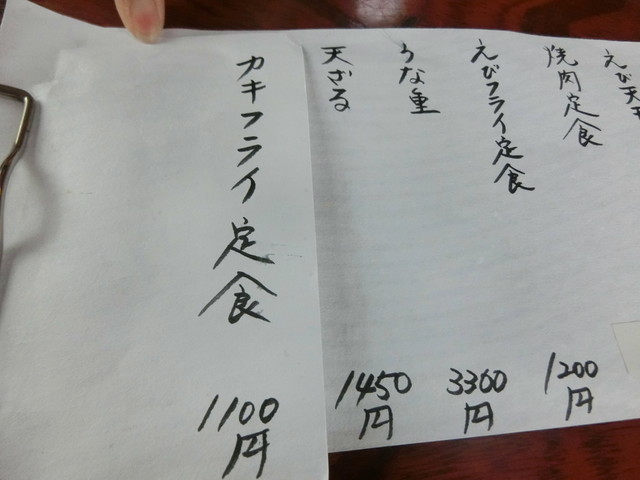 えび天
焼肉定食
えびフライ定食
1200円
うな重
3360円
天ざる
1450円
カキフライ定食
1100円